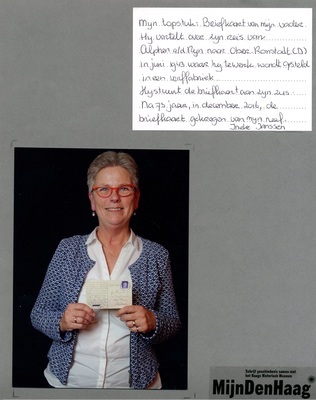 Mijn topstuk: Briefkaart van mijn vader.
Hij vertelt over zijn reis van
Alphen a/d Rijn naar Ober Ramstadt (D)
in juni 1943 waar hij te werk wordt gesteld
in een wiffabriek.
Hij stuurt de briefkaart aan zijn zus.
Na 73 jaar, in december 2016, de
briefkaart gekregen van mijn neef.
Ineke Janssen
Schrijf geschiedenis samen met
het Haags Historisch Museum
MijnDenHaag